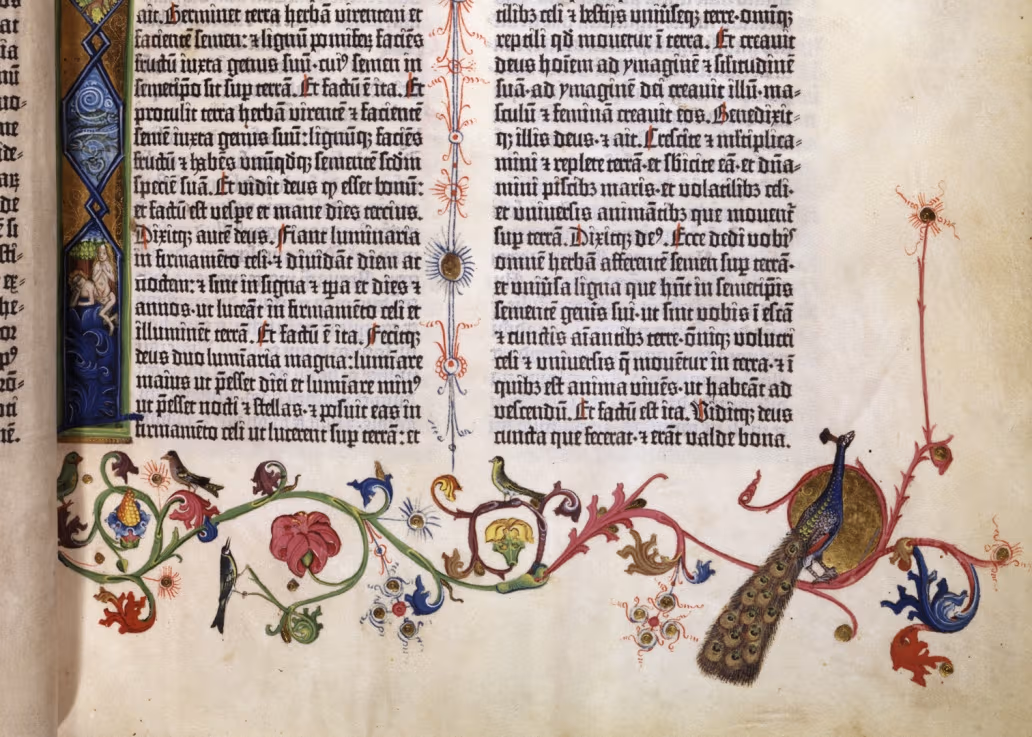 ait. Germinet terra herbā virentem et
facientē semen: ⁊ lignū pomiferꝫ faciēs
fructū iuxta genus suū· cuiꝰ semen in
semetip̄o sit sup terrā. Et factū ē ita. Et
protulit terra herbā virentē ⁊ facientē
semē iuxta genus suū: lignūqꝫ faciēs
fructū ⁊ habēs unūqdqꝫ sementē scdm
speciē suā. Et vidit deus ꝙ esset bonū:
et factū est vespe et mane dies tercius.
Dixitqꝫ autē deus. Fiant luminaria
in firmamēto celi· ⁊ diuidāt diem ac
noctem: ⁊ sint in signa ⁊ tp̄a et dies ⁊
annos· ut luceāt in firmamēto celi et
illuminēt terrā. Et factū ē ita. Fecitqꝫ
deus duo luminaria magna: luminare
maius ut p̄esset diei et luminare minꝰ
ut p̄esset nocti ⁊ stellas· ⁊ posuit eas in
firmamēto celi ut lucerent sup terrā: et
tilibꝫ celi ⁊ bestijs uniuseqꝫ terre· omīqꝫ
reptili qd mouetur ī terra. Et creauit
deus hoīem ad ymaginē ⁊ silitudinē
suā· ad ymaginē dei creauit illū· ma-
sculū ⁊ feminā creauit eos. Benedixit-
qꝫ illis deus· ⁊ ait. Crescite ⁊ mltiplica-
mini ⁊ replete terrā· et sbicite eā· et dn̄a-
mini piscibꝫ maris· et volatilibꝫ celi·
et uniuersis animātibꝫ que mouent̄
sup terrā. Dixitqꝫ deꝰ. Ecce dedi vobis
omnē herbā afferentē semen sup terrā·
et uniūsa ligna que hn̄t in semetip̄is
sementē genis sui· ut sint vobis ī escā
⁊ cunctis aīantibꝫ terre· ōniqꝫ volucri
celi ⁊ uniuersis q̄ mouētur in terra· ⁊ ī
quibꝫ est anima viuēs· ut habeāt ad
vescendū. Et factū est ita. Viditqꝫ deus
cuncta que fecerat· ⁊ erāt valde bona.